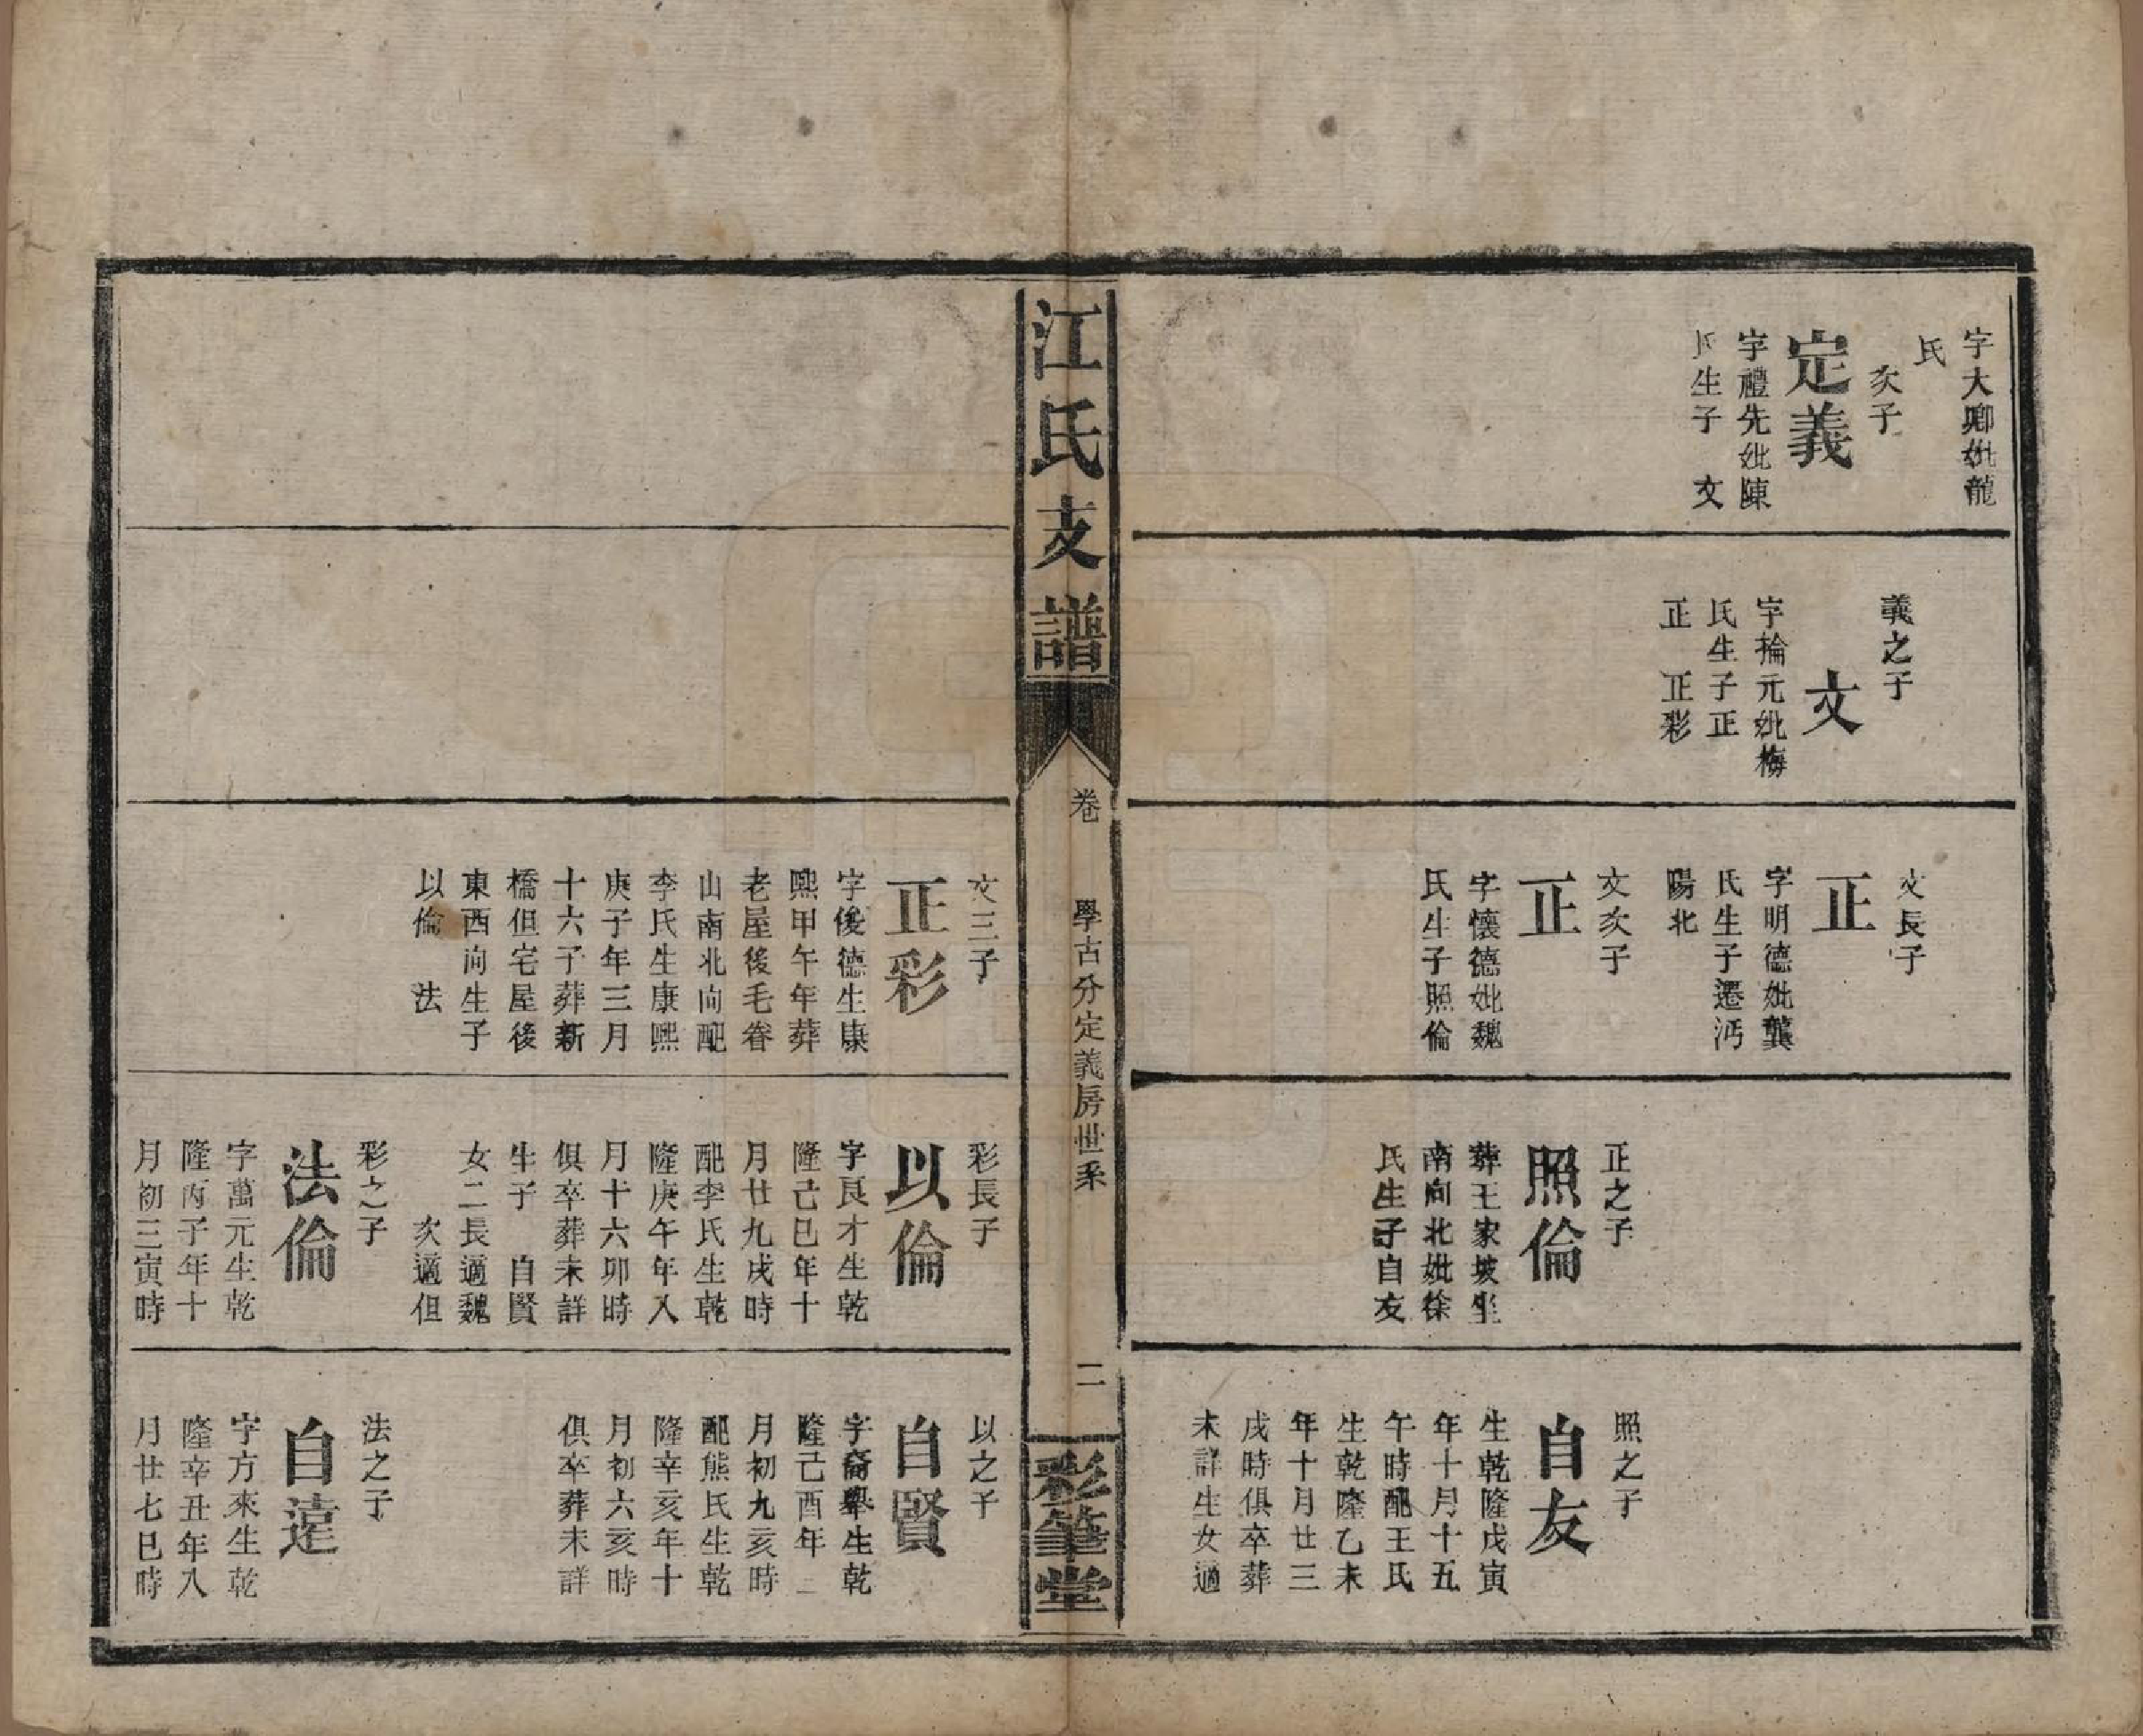 字大卿妣龍
氏
次子
定義
字禮先妣陳
氏生子　文
義之子
文
字掄元妣梅
氏生子正
正　正彩
文長子
正
字明德妣龔
氏生子遷沔
陽北
文次子
正
字懷德妣魏
氏生子照倫
正之子
照倫
葬王家坡坐
南向北妣徐
氏生子自友
照之子
自友
生乾隆戊寅
年十月十五
午時配王氏
生乾隆乙未
年十月廿三
戌時俱卒葬
未詳生女適
江氏支譜
卷
學古分定義房世系
二
彩筆堂
文三子
正彩
字後德生康
熙甲午年葬
老屋後毛眷
山南北向配
李氏生康熙
庚子年三月
十六子葬新
橋但宅屋後
東西向生子
以倫　法
彩長子
以倫
字良才生乾
隆己巳年十
月廿九戌時
配李氏生乾
隆庚午年八
月十六卯時
俱卒葬未詳
生子　自賢
女二長適魏
次適但
彩之子
法倫
字萬元生乾
隆丙子年十
月初三寅時
以之子
自賢
字裔舉生乾
隆己酉年二
月初九亥時
配熊氏生乾
隆辛亥年十
月初六亥時
俱卒葬未詳
法之子
自遠
字方來生乾
隆辛丑年八
月廿七巳時